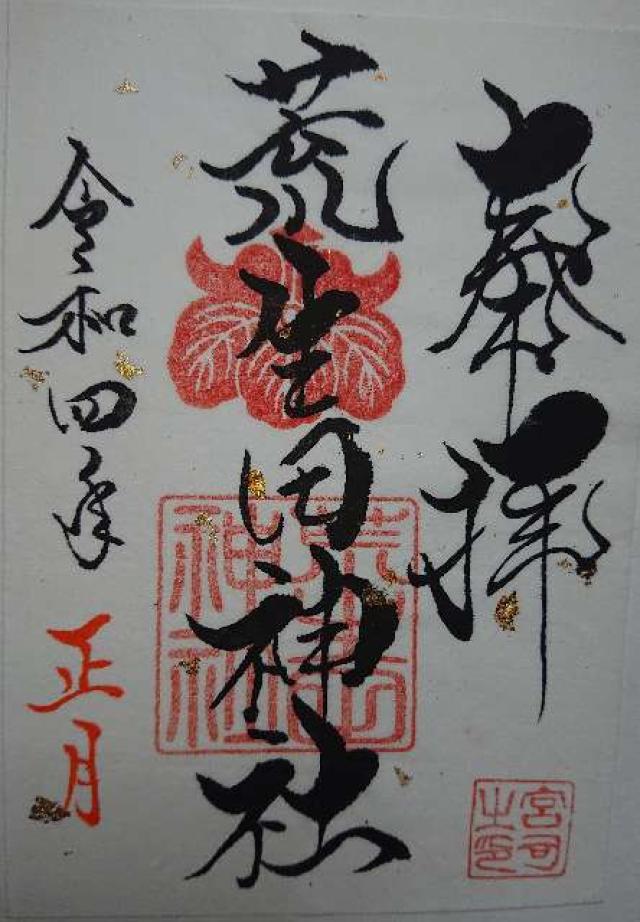 奉拝
荒生田神社
令和四年
正月
荒生田
神社
宮司
之印